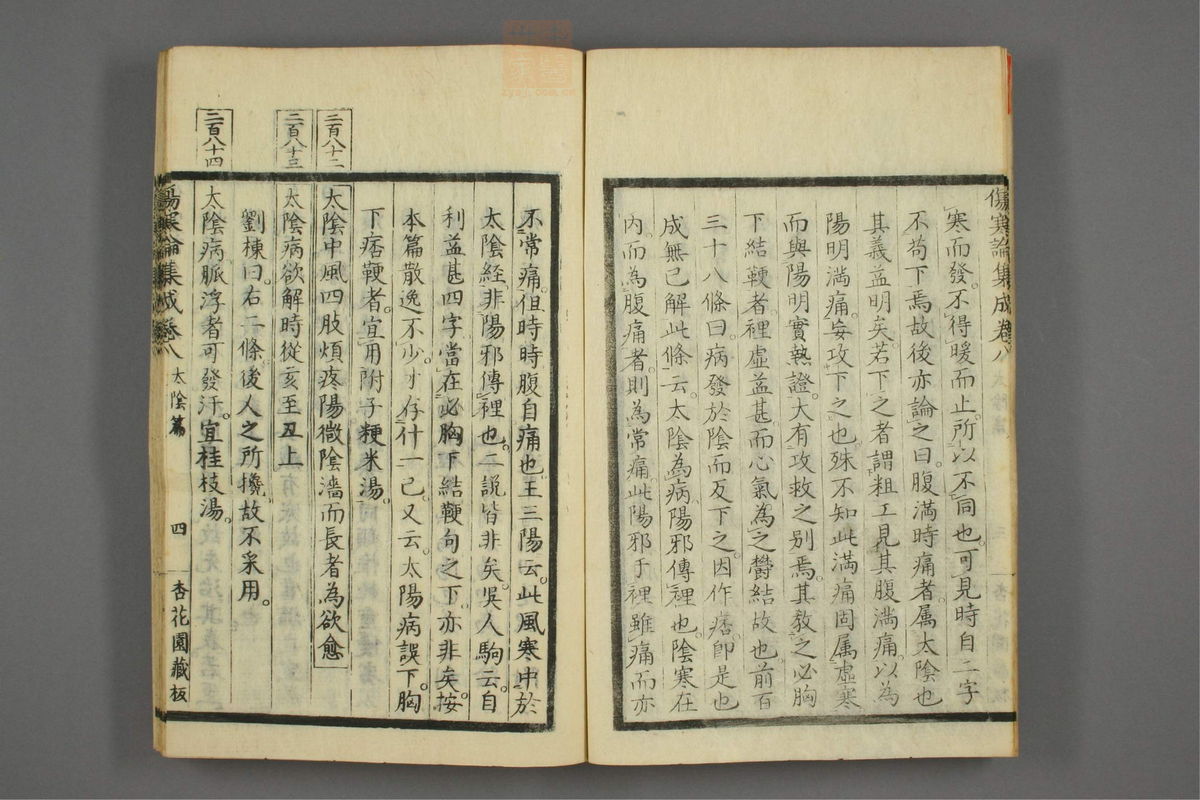 傷寒論集成卷八
寒而發。不得暖而止。所以不同也。可見時自二字
不苟下焉故後亦論之曰。腹滿時痛者。属太陰也
其義益明矣。若下之者。謂粗工見其腹滿痛。以為
陽明滿痛。妄攻下之也。殊不知此滿痛固属虛寒
而與陽明實熱證。大有攻救之別焉。其教之必胸
下結鞕者。裡虛益甚而心氣為之鬱結故也。前百
三十八條曰。病發於陰而反下之。因作痞。卽是也
成無己解此條云。太陰為病。陽邪傳裡也。陰寒在
内。而為腹痛者。則為常痛。此陽邪于裡。雖痛而亦
不常痛。但時時腹自痛也。王三陽云。此風寒中於
太陰經。非陽邪傳裡也。二說皆非矣。吳人駒云。自
利益甚四字。當在必胸下結鞕句之下。亦非矣。按
本篇散逸不少。才存什一已。又云。太陽病誤下。胸
下痞鞕者。宜用附子粳米湯。
二百八十二
太陰中風四肢煩疼陽微陰濇而長者為欲愈
二百八十三
太陰病欲解時從亥至丑上
劉棟曰。右二條。後人之所攙。故不采用。
二百八十四
太陰病脈浮者可發汗。宜桂枝湯。
傷寒論集成卷八 太陰篇 四 杏花園藏板